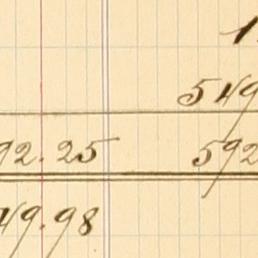 1
549
92.25 592
49.98